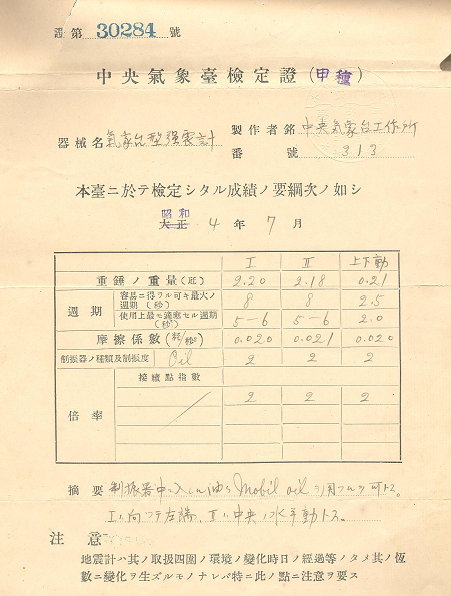 證第 30284 號
中央氣象臺檢定證(甲種)
器械名 氣象台型強震計 製作者銘 中央氣象台工作所
番號 313
本臺ニ於テ檢定シタル成績ノ要綱次ノ如シ
昭和
大正 4 年 7 月
I II 上下動
重錘ノ重量(瓩) 2.20 2.18 0.21
週期 容易ニ得ラル可キ最大ノ週期(秒) 8 8 2.5
使用上最モ適應セル週期(秒) 5-6 5-6 2.0
摩擦係數(粍/秒²) 0.020 0.021 0.020
制振器ノ種類及制振度 Oil 2 2 2
倍率 接續點指數
2 2 2
摘要 制振器中ニ入レル油ハ Mobil oil ヲ用フルヲ可トス。
Iハ向フテ左端、IIハ中央ノ水平動トス。
注意
地震計ハ其ノ取扱四圍ノ環境ノ變化時日ノ經過等ノタメ其ノ恆
數ニ變化ヲ生ズルモノナレバ特ニ此ノ點ニ注意ヲ要ス